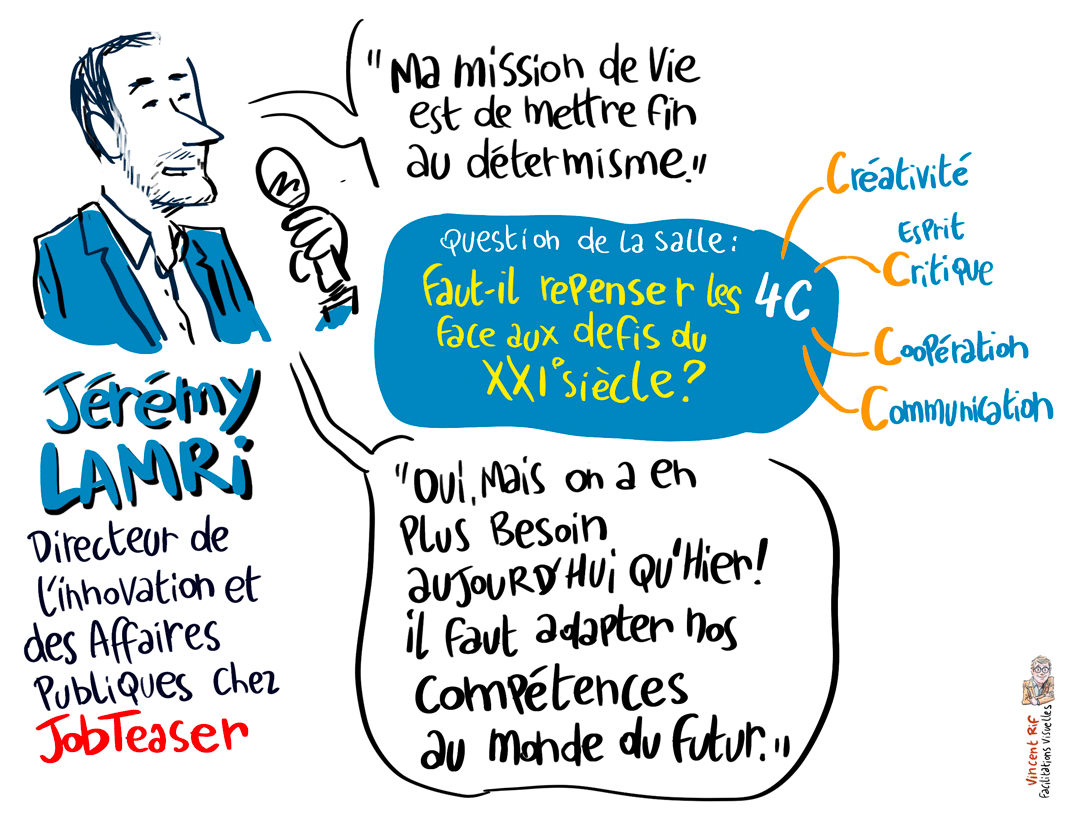 "Ma mission de Vie
est de mettre fin
au détermisme."
Question de la salle :
Faut-il repenser les 4C
face aux defis du
XXIe siècle ?
Créativité
Esprit
Critique
Coopération
Communication
Jérémy
LAMRi
Directeur de
l'innovation et
des Affaires
Publiques chez
JobTeaser
"Oui, Mais on a en
Plus Besoin
aujourd'hui qu'Hier !
il faut adapter nos
compétences
au monde du futur."
Vincent Rif
Facilitations Visuelles